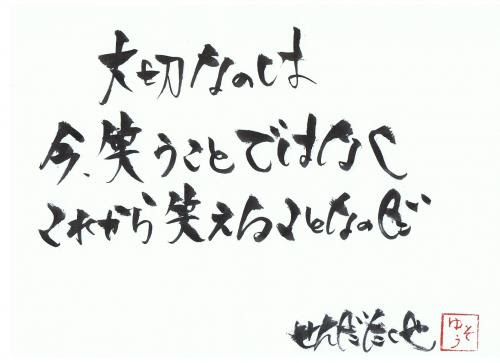 大切なのは
今、笑うことではなく
これから笑えることなのだ
せんだたくや
そゆう